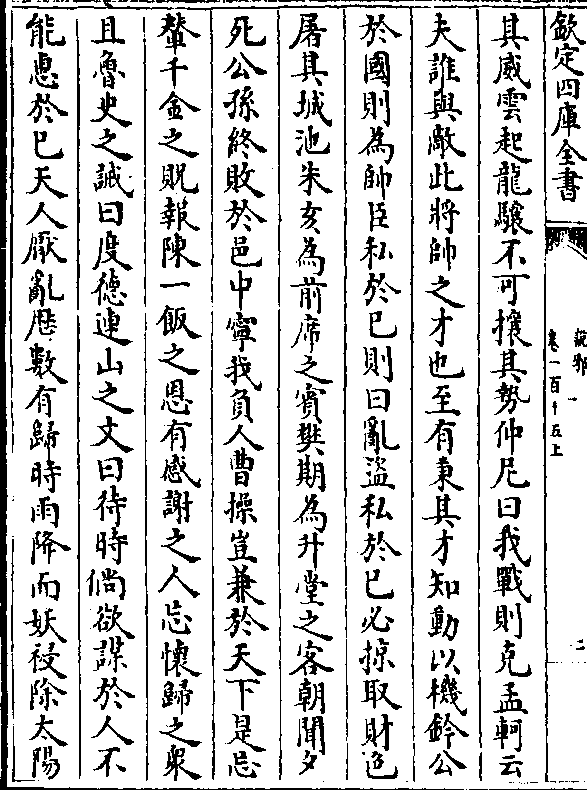 欽定四庫全書
說郛
卷一百十五上
二
其威雲起龍驤不可攘其勢仲尼曰我戰則克孟軻云
夫誰與敵此將帥之才也至有秉其才知動以機鈐公
於國則為帥臣私於已則曰亂盜私於已必掠取財色
屠其城池朱亥為前席之賓樊期為升堂之客朝聞夕
死公孫終敗於邑中寧我負人曹操豈兼於天下是忘
輦千金之貺報陳一飯之恩有感謝之人忘懷歸之衆
且魯史之誡曰度德連山之文曰待時倘欲謀於人不
能惠於已天人厭亂歷數有歸時雨降而妖祲除太陽